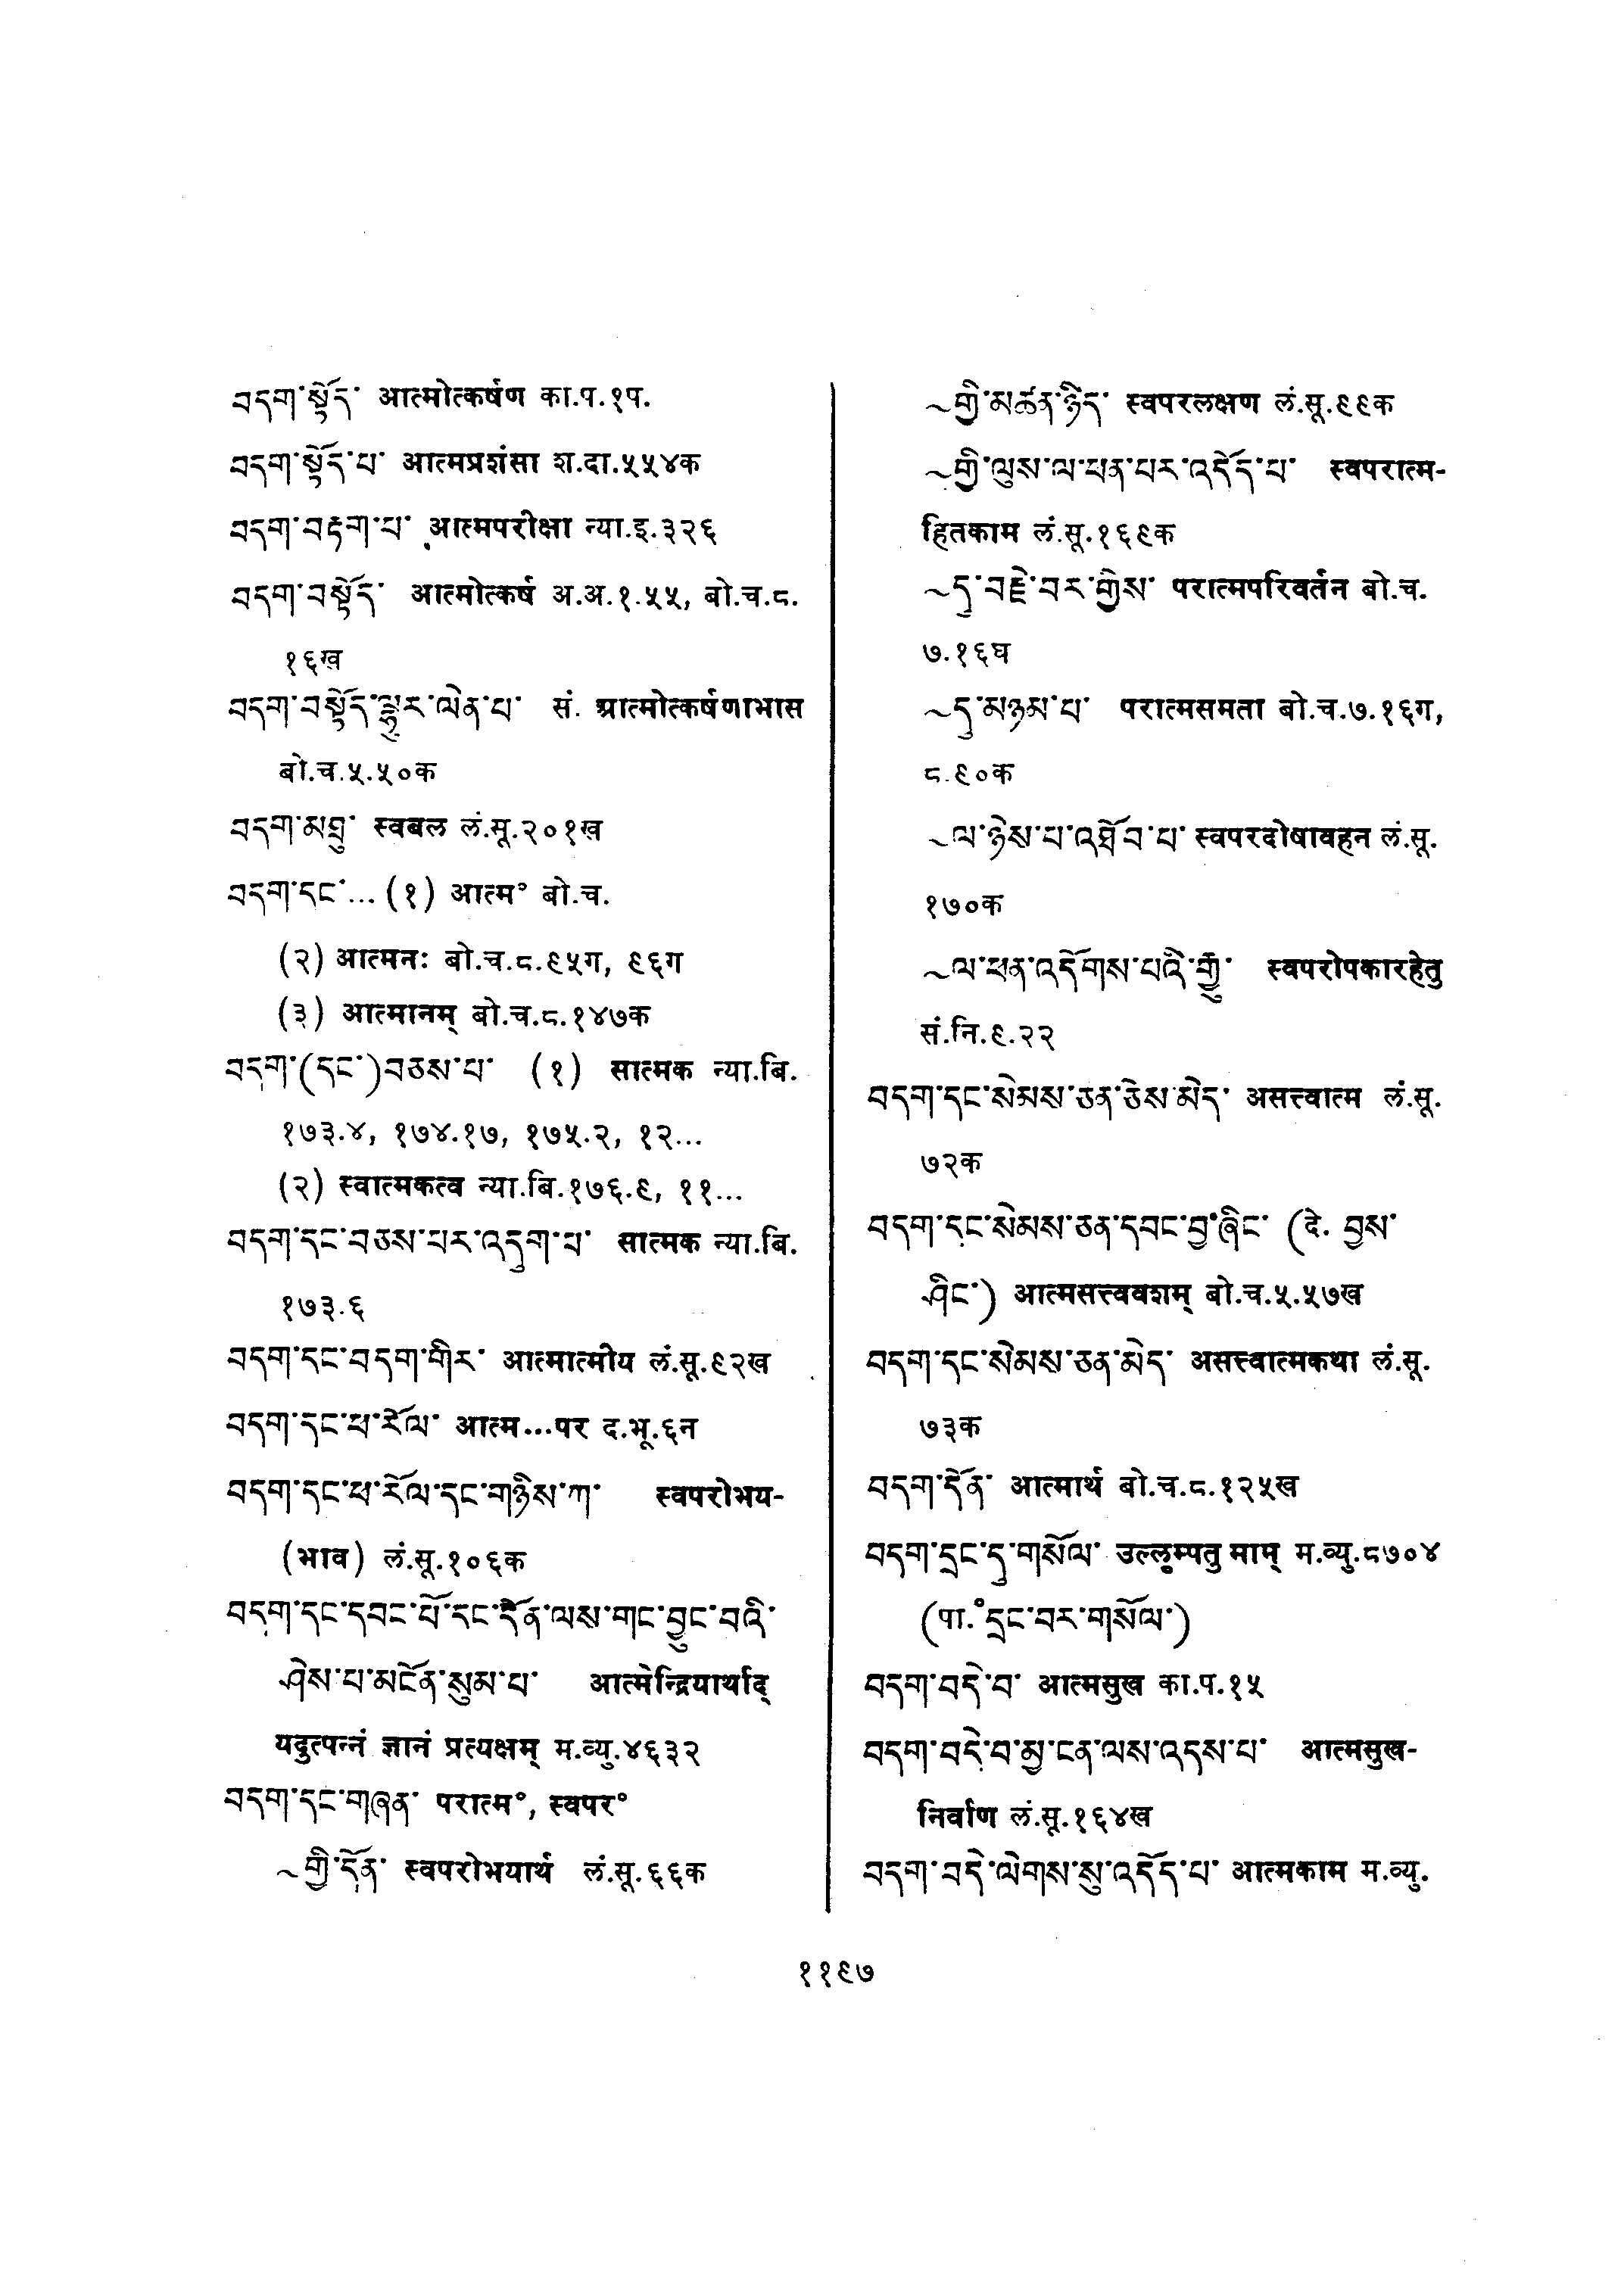 བདག་སྟོད་ आत्मोत्कर्षण का.प.१प.
བདག་སྟོད་པ་ आत्मप्रशंसा श.दा.५५४क
བདག་བརྟག་པ་ आत्मपरीक्षा न्या.इ.३२६
བདག་བསྟོད་ आत्मोत्कर्ष अ.अ.१.५५, बो.च.८.
१६ख
བདག་བསྟོད་ལྷུར་ལེན་པ་ सं. आत्मोत्कर्षणाभास
बो.च.५.५०क
བདག་མཐུ་ स्वबल लं.सू.२०१ख
བདག་དང་... (१) आत्म° बो.च.
(२) आत्मनः बो.च.८.९५ग, ९६ग
(३) आत्मानम् बो.च.८.१४७क
བདག་(དང་)བཅས་པ་ (१) सात्मक न्या.बि.
१७३.४, १७४.१७, १७५.२, १२...
(२) स्वात्मकत्व न्या.बि.१७६.९, ११...
བདག་དང་བཅས་པར་འདུག་པ་ सात्मक न्या.बि.
१७३.६
བདག་དང་བདག་གིར་ आत्मात्मीय लं.सू.९२ख
བདག་དང་ཕ་རོལ་ आत्म...पर द.भू.६न
བདག་དང་ཕ་རོལ་དང་གཉིས་ཀ་ स्वपरोभय-
(भाव) लं.सू.१०६क
བདག་དང་དབང་པོ་དང་དོན་ལས་གང་བྱུང་བའི་
ཤེས་པ་མངོན་སུམ་པ་ आत्मेन्द्रियार्थाद्
यदुत्पन्नं ज्ञानं प्रत्यक्षम् म.व्यु.४६३२
བདག་དང་གཞན་ परात्म°, स्वपर°
~གྱི་དོན་ स्वपरोभयार्थ लं.सू.६६क
~གྱི་མཚན་ཉིད་ स्वपरलक्षण लं.सू.९९क
~གྱི་ལུས་ལ་པན་པར་འདོད་པ་ स्वपरात्म-
हितकाम लं.सू.१६९क
~དུ་བརྗེ་བར་གྱིས་ परात्मपरिवर्तन बो.च.
७.१६घ
~དུ་མཉམ་པ་ परात्मसमता बो.च.७.१६ग,
८.९०क
~ལ་ཉེས་པ་འཐོབ་པ་ स्वपरदोषावहन लं.सू.
१७०क
~ལ་ཕན་འདོགས་པའི་རྒྱུ་ स्वपरोपकारहेतु
सं.नि.९.२२
བདག་དང་སེམས་ཅན་ཅེས་མེད་ असत्त्वात्म लं.सू.
७२क
བདག་དང་སེམས་ཅན་དབང་བྱ་ཞིང་ (दे. བྱས་
ཤིང་) आत्मसत्त्ववशम् बो.च.५.५७ख
བདག་དང་སེམས་ཅན་མེད་ असत्त्वात्मकथा लं.सू.
७३क
བདག་དོན་ आत्मार्थ बो.च.८.१२५ख
བདག་དྲང་དུ་གསོལ་ उल्लुम्पतु माम् म.व्यु.८७०४
(पा.°དྲང་བར་གསོལ་)
བདག་བདེ་བ་ आत्मसुख का.प.१५
བདག་བདེ་བ་མྱ་ངན་ལས་འདས་པ་ आत्मसुख-
निर्वाण लं.सू.१६४ख
བདག་བདེ་ལེགས་སུ་འདོད་པ་ आत्मकाम म.व्यु.
११९७